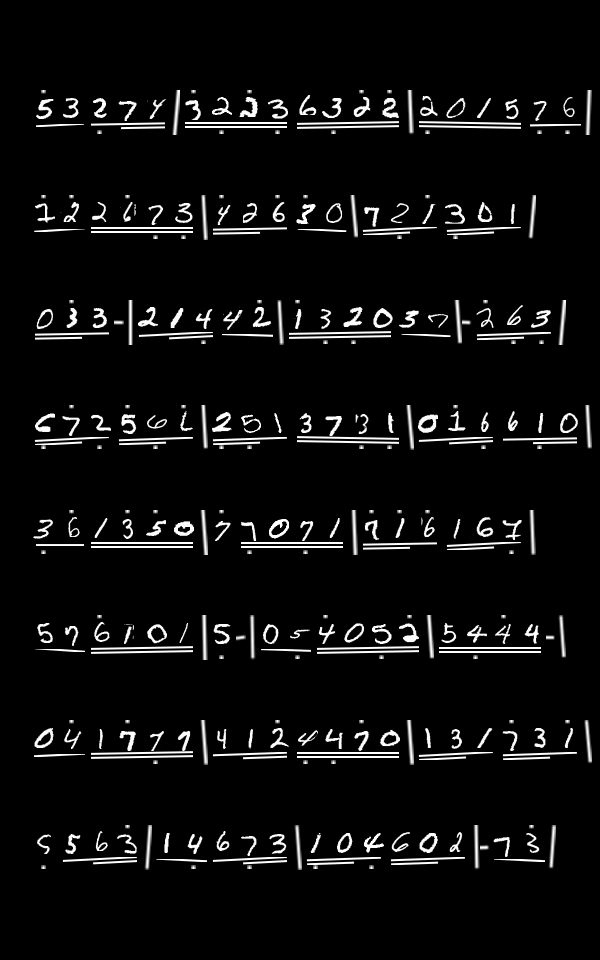 5 3 2 7 4 | 3 2 2 3 6 3 2 2 | 2 0 1 5 7 6 |
1 2 2 6 7 3 | 4 2 6 3 0 | 7 2 1 3 0 1 |
0 3 3 - | 2 1 4 4 2 | 1 3 2 0 3 7 | - 2 6 3 |
6 7 2 5 6 1 | 2 5 1 3 7 3 1 | 0 1 6 6 1 0 |
3 6 1 3 5 0 | 7 7 0 7 1 | 7 1 6 1 6 7 |
5 7 6 1 0 1 | 5 - | 0 5 4 0 5 2 | 5 4 4 4 - |
0 4 1 7 7 7 | 4 1 2 4 4 7 0 | 1 3 1 7 3 1 |
5 5 6 3 | 1 4 6 7 3 | 1 0 4 6 0 2 | - 7 3 |